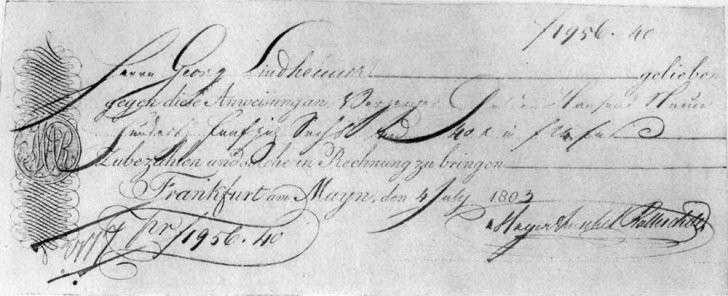 ƒ1956.40
Herrn Georg Lindheimer geliebe
gegen diese Anweisung an Vorzeiger Gulden Tausend Neun
hundert fünfzig Sechs und 40 x in
Zubezahlen und solche in Rechnung zu bringen
Frankfurt am Mayn, den 4 July 1803
MAR
pr ƒ1956.40
Mayer Amschel Rothschild